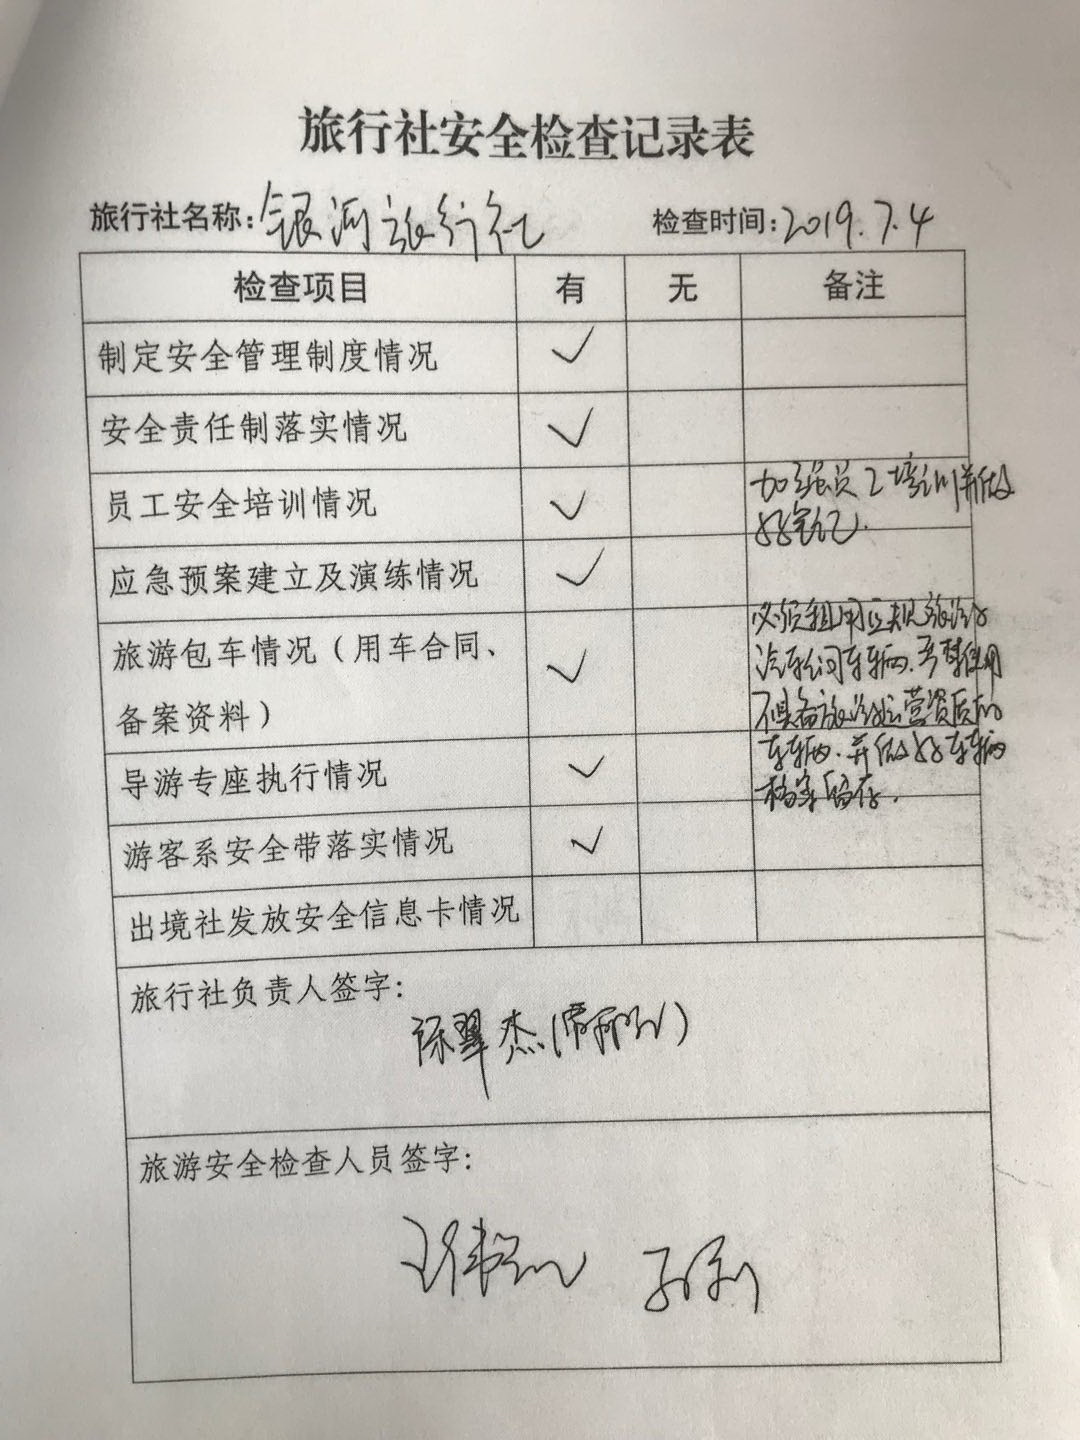 旅行社安全检查记录表
旅行社名称:银河旅行社 检查时间:2019.7.4
检查项目 有 无 备注
制定安全管理制度情况 ✓
安全责任制落实情况 ✓
员工安全培训情况 ✓ 加强员工培训并做
好笔记.
应急预案建立及演练情况 ✓
旅游包车情况（用车合同、 必须租用正规旅游
备案资料） ✓ 汽车公司车辆.严禁使用
不具备旅游运营资质的
导游专座执行情况 ✓ 车辆.并做好车辆
档案留存.
游客系安全带落实情况 ✓
出境社发放安全信息卡情况
旅行社负责人签字:
旅游安全检查人员签字: